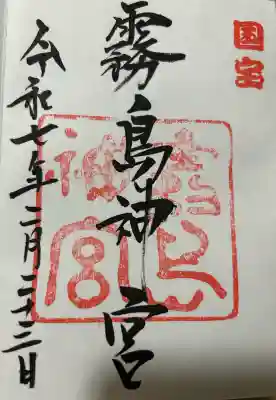 国宝
霧島神宮
令和七年二月二十三日